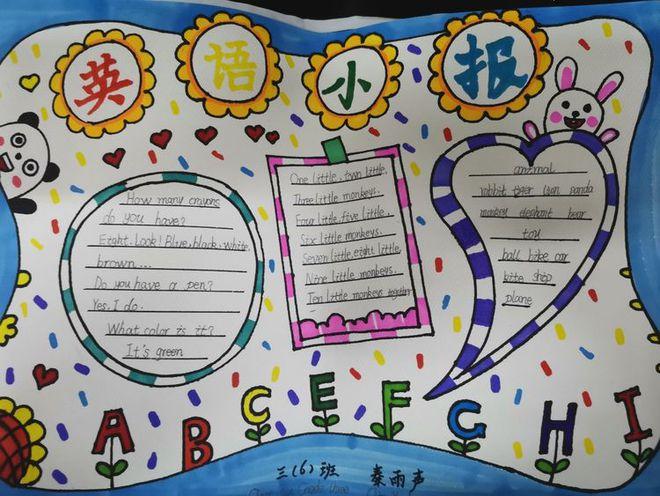 英语小报
How many crayons
do you have?
Eight. Look! Blue, black, white
brown...
Do you have a pen?
Yes, I do.
What color is it?
It's green
One little, two little,
Three little monkeys.
Four little, five little,
Six little monkeys.
Seven little, eight little,
Nine little monkeys.
Ten little monkeys together
animal
rabbit tiger lion panda
monkey elephant bear
toy
ball bike car
kite ship
plane
A B C E F G H I
三(6)班 秦雨声